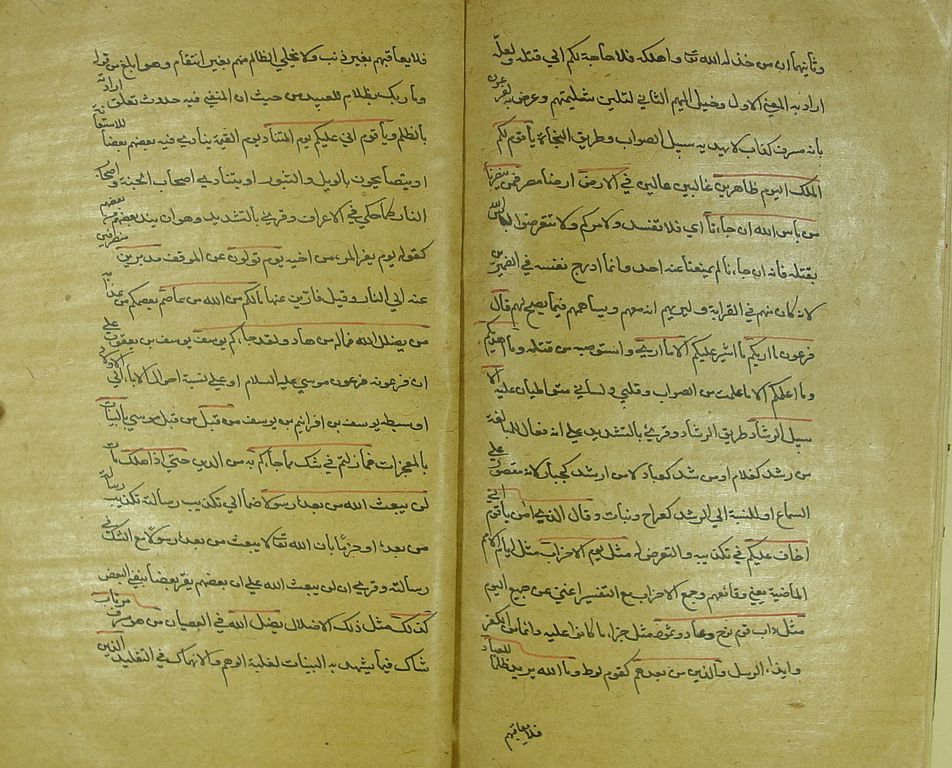 وثانيهما ان من خذله الله تعالى واهلكه فلا حاجة لكم الى قتله ولعله
اراد به المعنى الاول وخيل اليهم الثاني لتلين شكيمتهم وعرض به لفرعون
بانه مسرف كذاب لا يهديه سبيل الصواب وطريق النجاة يا قوم لكم
الملك اليوم ظاهرين غالبين عالين في الارض ارض مصر فمن ينصرنا
من بأس الله ان جاءنا اي فلا تفسدوا امركم ولا تتعرضوا لبأس الله
بقتله فانه ان جاءنا لم يمنعنا عنه احد وانما ادرج نفسه في الضميرين
لانه كان منهم في القرابة وليريهم انه معهم ومساهمهم فيما ينصح لهم قال
فرعون ما اريكم ما اشير عليكم الا ما ارى واستصوبه من قتله وما اهديكم
وما اعلمكم الا ما علمت من الصواب وقلبي ولساني متواطيان عليه الا
سبيل الرشاد طريق الرشاد وقرئ بالتشديد على انه فعال للمبالغة
من رشد كعلام او من رشد كعباد لا من ارشد كجبار لانه مقصور على
السماع او للنسبة الى الرشد كعواج وبتات وقال الذي امن يا قوم اني
اخاف عليكم في تكذيبه والتعرض له مثل يوم الاحزاب مثل ايام الامم
الماضية يعني وقائعهم وجمع الاحزاب مع التفسير اغنى عن جمع اليوم
مثل دأب قوم نوح وعاد وثمود مثل جزاء ما كانوا عليه دائما من الكفر
وايذاء الرسل والذين من بعدهم كقوم لوط وما الله يريد ظلما للعباد
فلا يعاقبهم
فلا يعاقبهم بغير ذنب ولا يخلي الظالم منهم بغير انتقام وهو ابلغ من قوله
وما ربك بظلام للعبيد من حيث ان المنفي فيه حدوث تعلق ارادته
بالظلم ويا قوم اني اخاف عليكم يوم التناد يوم القيمة ينادي فيه بعضهم بعضا للاستغاثة
او يتصايحون بالويل والثبور او يتنادى اصحاب الجنة واصحاب
النار كما حكى في الاعراف وقرئ بالتشديد وهو ان يند بعضهم من بعض
كقوله يوم يفر المرء من اخيه يوم تولون عن الموقف مدبرين منصرفين
عنه الى النار وقيل فارين عنها ما لكم من الله من عاصم يعصمكم من عذابه
ومن يضلل الله فما له من هاد ولقد جاءكم يوسف يوسف بن يعقوب على
ان فرعونه فرعون موسى عليه السلام او على نسبة احوال الاباء الى الاولاد
او سبطه يوسف بن افرائيم بن يوسف من قبل من قبل موسى بالبينات
بالمعجزات فما زلتم في شك مما جاءكم به من الدين حتى اذا هلك مات
قلتم لن يبعث الله من بعده رسولا ضما الى تكذيب رسالته تكذيب رسالة
من بعده او جزما بان الله تعالى لا يبعث من بعده رسولا مع الشك في
رسالته وقرئ الن يبعث الله على ان بعضهم يقرر بعضا بنفي البعث
كذلك مثل ذلك الاضلال يضل الله في العصيان من هو مسرف مرتاب
شاك فيما يشهد به البينات لغلبة الوهم والانهماك في التقليد الذين